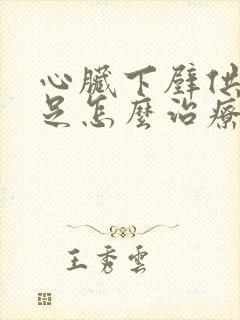 心臟下壁供
足怎麼治療
王秀雲